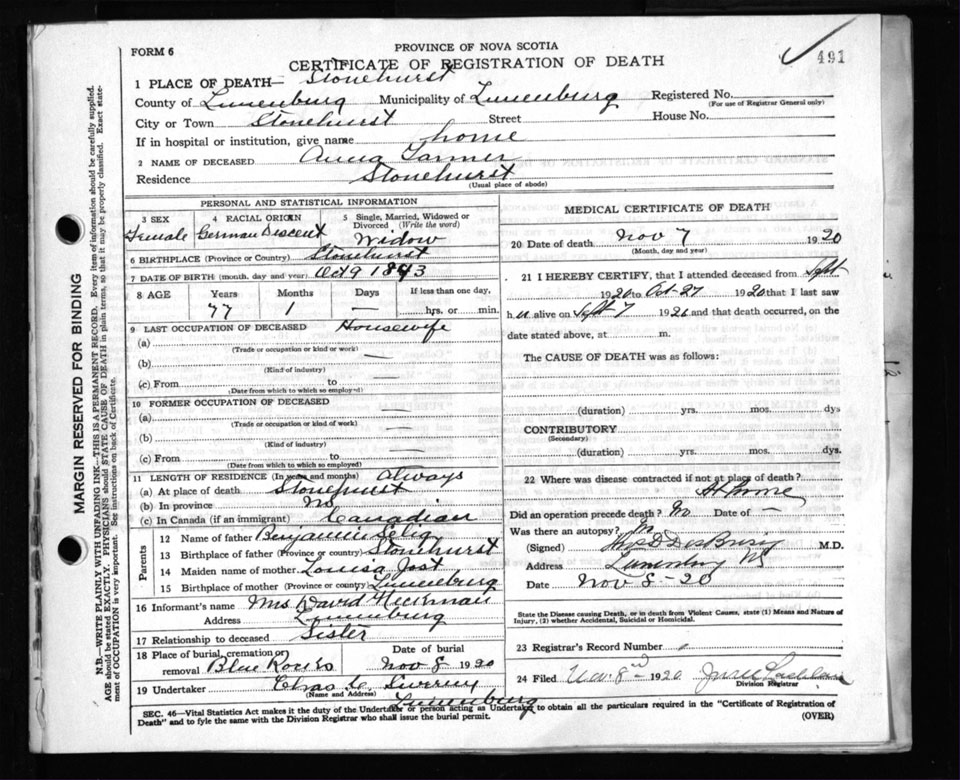 FORM 6
PROVINCE OF NOVA SCOTIA
CERTIFICATE OF REGISTRATION OF DEATH
491
1 PLACE OF DEATH— Stonehurst
County of Lunenburg Municipality of Lunenburg Registered No.
(For use of Registrar General only)
City or Town Stonehurst Street House No.
If in hospital or institution, give name home
2 NAME OF DECEASED Anna Tanner
Residence Stonehurst
(Usual place of abode)
PERSONAL AND STATISTICAL INFORMATION
3 SEX
Female
4 RACIAL ORIGIN
German Descent
5 Single, Married, Widowed or
Divorced (Write the word)
Widow
6 BIRTHPLACE (Province or Country) Stonehurst
7 DATE OF BIRTH (month, day and year) Oct 9 1843
8 AGE Years Months Days If less than one day,
77 1 — hrs. or min.
9 LAST OCCUPATION OF DECEASED Housewife
(a)
(Trade or occupation or kind or work)
(b) —
(Kind of industry)
(c) From to —
(Date from which to which so employed)
10 FORMER OCCUPATION OF DECEASED —
(a)
(Trade or occupation or kind of work) —
(b)
(Kind of industry) —
(c) From to
(Date from which to which so employed)
11 LENGTH OF RESIDENCE (In years and months) Always
(a) At place of death Stonehurst
(b) In province NS
(c) In Canada (if an immigrant) Canadian
Parents
12 Name of father Benjamin
13 Birthplace of father (Province or country) Stonehurst
14 Maiden name of mother Louisa Jost
15 Birthplace of mother (Province or country) Lunenburg
16 Informant's name Mrs David Heckman
Address Lunenburg
17 Relationship to deceased Sister
18 Place of burial, cremation or
removal Blue Rocks
Date of burial
Nov 8 1920
19 Undertaker Chas
(Name and Address)
Lunenburg
MEDICAL CERTIFICATE OF DEATH
20 Date of death Nov 7 1920
(Month, day and year)
21 I HEREBY CERTIFY, that I attended deceased from Sept
1920 to Oct 27 1920 that I last saw
h er alive on Sept 7 1920 and that death occurred, on the
date stated above, at m.
The CAUSE OF DEATH was as follows:
(duration) yrs. mos. dys
CONTRIBUTORY
(Secondary)
(duration) yrs. mos. dys.
22 Where was disease contracted if not at place of death?
At home
Did an operation precede death? No Date of —
Was there an autopsy? No
(Signed) DesBrisay M.D.
Address Lunenburg NS
Date Nov 8 - 20
State the Disease causing Death, or in death from Violent Causes, state (1) Means and Nature of
Injury, (2) whether Accidental, Suicidal or Homicidal.
23 Registrar's Record Number
24 Filed Nov. 8 1920
Division Registrar
SEC. 46—Vital Statistics Act makes it the duty of the Undertaker or person acting as Undertaker to obtain all the particulars required in the "Certificate of Registration of
Death" and to fyle the same with the Division Registrar who shall issue the burial permit.
(OVER)
MARGIN RESERVED FOR BINDING
N.B.—WRITE PLAINLY WITH UNFADING INK—THIS IS A PERMANENT RECORD. Every item of information should be carefully supplied.
AGE should be stated EXACTLY. PHYSICIANS should STATE CAUSE OF DEATH in plain terms, so that it may be properly classified. Exact state-
ment of OCCUPATION is very important. See instructions on back of Certificate.